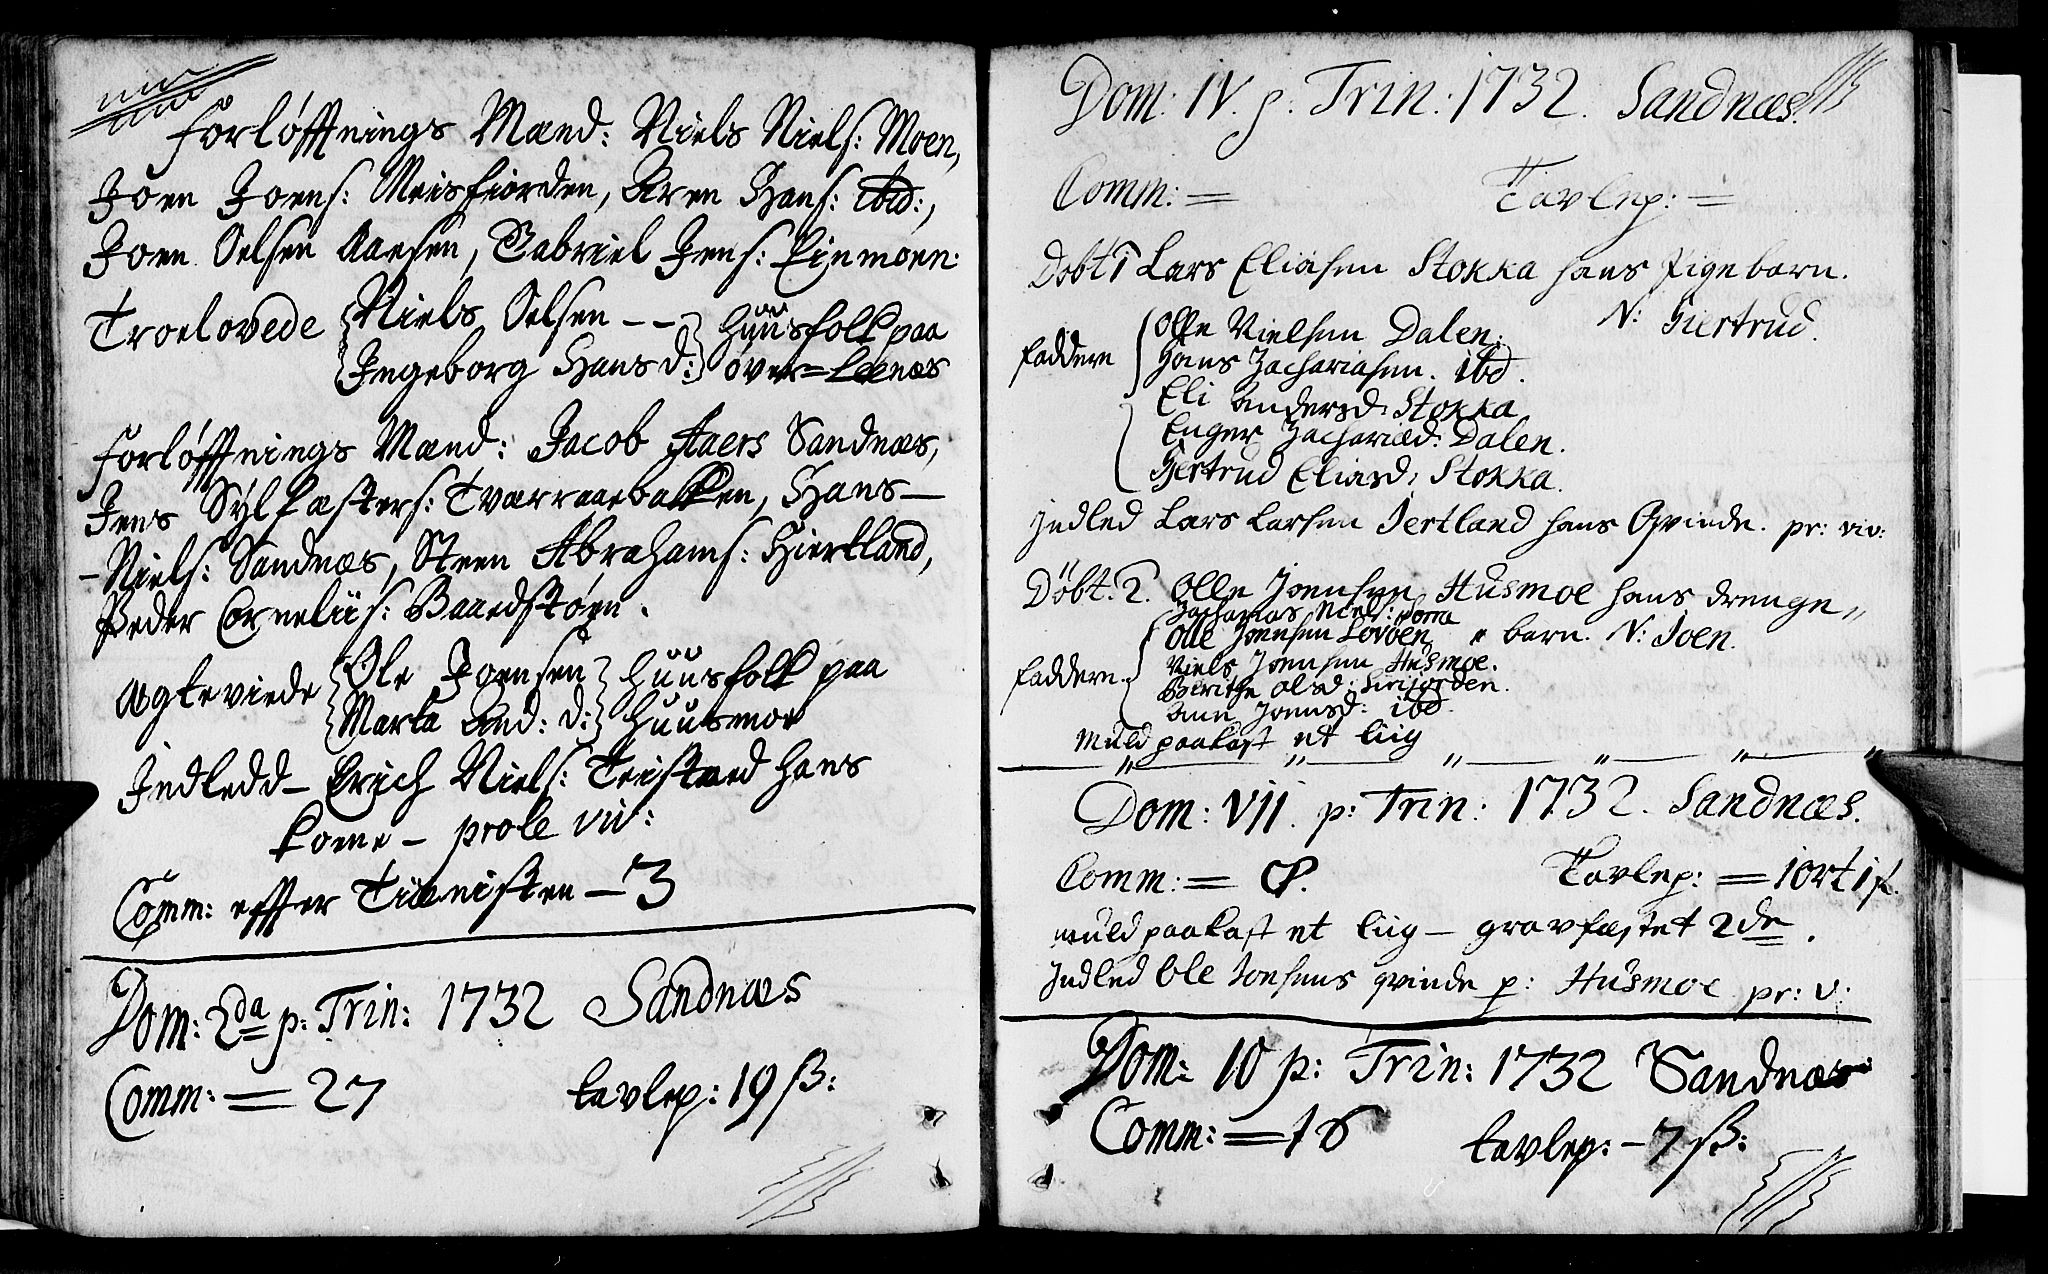 Forløfftnings Mænd: Niels Niels: Moen,
Joen Joens: Meisfiorden, Aren Hans: ibid:,
Joen Oelsen Aaesen, Gabriel Jens: Einmoen.
Troelovede Niels Oelsen -- Huusfolk paa
Ingeborg Hansd: over=Leenæs
Forløfftnings Mænd: Jacob Aaers Sandnæs,
Jens Sylfasters: Tværraaebakken, Hans
-Niels: Sandnæs, Steen Abrahams: Hiertland,
Peder Corneliis: Baardstøen.
Ægteviede Ole Joensen Huusfolk paa
Marta And: d: Huusmoe
Indledd - Erich Niels: Teistaed hans
Kone - prole viv:
Comm: effter Tienisten - 3
Dom: 2da p: Trin: 1732 Sandnæs
Comm: = 27 tavlep: 19 ß:
Dom: IV. p. Trin: 1732. Sandnæs.
Comm: = Tavlep: =
Døbt 1 Lars Eliasen Stokka hans Pigebarn.
N: Giertrud.
Faddere Olle Nielsen Dalen.
Hans Zachariasen. ibd.
Eli Andersd: Stokka
Enger Zachariæd: Dalen.
Giertrud Eliasd: Stokka.
Indled Lars Larsen Jertland hans Qvinde. pr: viv:
Døbt. 2. Olle Joensen Husmoe hans drenge
Zacharias Niels:
Olle Joensen Lovøen barn. N: Joen.
Faddere. Niels Joensen Husmoe.
Berithe Olsd:
Ane Joensd: ibd.
Muld paakast et liig
Dom: VII. p: Trin: 1732. Sandnæs.
Comm: = Tavlep: = 1 ort 1 ß.
muld paakast et liig - gravfæstet 2de.
Indled Ole Jonsens qvinde p: Husmoe pr: v:
Dom: 10 p: Trin: 1732 Sandnæs
Comm: = 16 tavlep: - 7 ß: